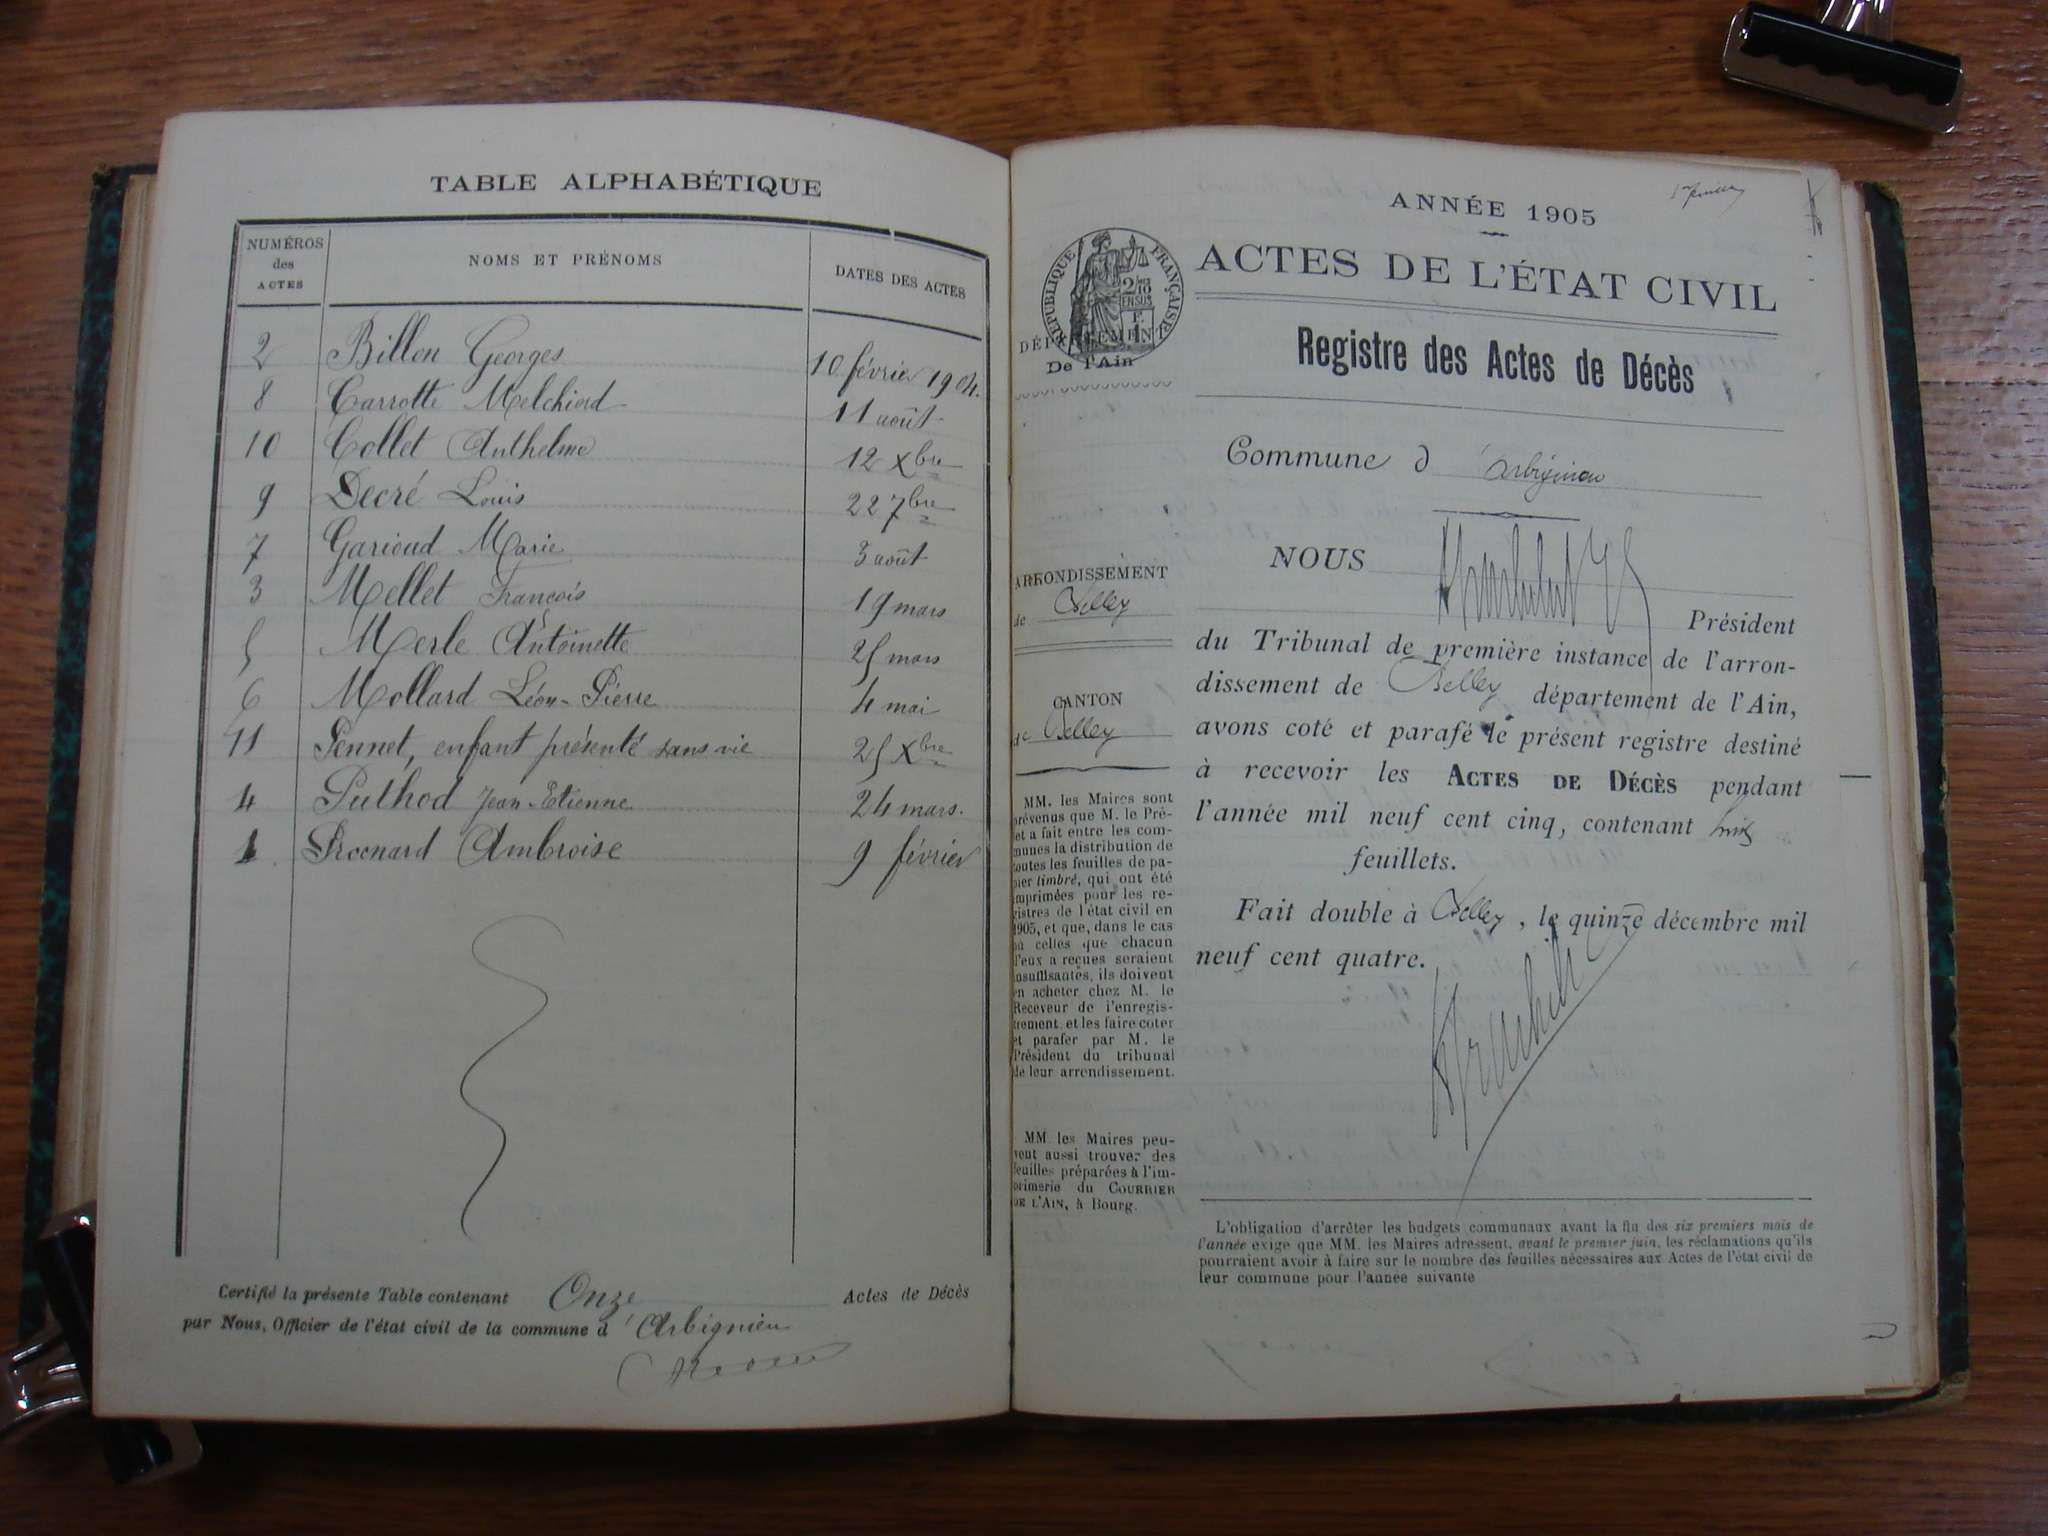 TABLE ALPHABÉTIQUE
NUMÉROS des ACTES
NOMS ET PRÉNOMS
DATES DES ACTES
2 Billon Georges 10 février 1904.
8 Carrotte Melchiord 11 août
10 Collet Anthelme 12 Xbre
9 Decré Louis 22 7bre
7 Garioud Marie 3 août
3 Mellet François 19 mars
5 Merle Antoinette 25 mars
6 Mollard Léon-Pierre 4 mai
11 Pennet, enfant présenté sans vie 25 Xbre
4 Puthod Jean-Etienne 24 mars.
1 Ambroise 9 février
Certifié la présente Table contenant Onze Actes de Décès
par Nous, Officier de l'état civil de la commune d'Arbignieu
ANNÉE 1905
ACTES DE L'ÉTAT CIVIL
RÉPUBLIQUE FRANÇAISE
2/10 EN SUS
DÉPARTEMENT
De l'Ain
Registre des Actes de Décès
Commune d'Arbignieu
ARRONDISSEMENT
de Belley
CANTON
de Belley
MM. les Maires sont
prévenus que M. le Pré-
et a fait entre les com-
munes la distribution de
toutes les feuilles de pa-
pier timbré, qui ont été
imprimées pour les re-
gistres de l'état civil en
1905, et que, dans le cas
où celles que chacun
d'eux a reçues seraient
insuffisantes, ils doivent
en acheter chez M. le
Receveur de l'enregis-
trement et les faire coter
et parafer par M. le
Président du tribunal
de leur arrondissement.
MM. les Maires peu-
vent aussi trouver des
feuilles préparées à l'im-
primerie du COURRIER
DE L'AIN, à Bourg.
NOUS
Président
du Tribunal de première instance de l'arron-
dissement de Belley département de l'Ain,
avons coté et parafé le présent registre destiné
à recevoir les ACTES DE DÉCÈS pendant
l'année mil neuf cent cinq, contenant huit
feuillets.
Fait double à Belley, le quinze décembre mil
neuf cent quatre.
L'obligation d'arrêter les budgets communaux avant la fin des six premiers mois de
l'année exige que MM. les Maires adressent, avant le premier juin, les réclamations qu'ils
pourraient avoir à faire sur le nombre des feuilles nécessaires aux Actes de l'état civil de
leur commune pour l'année suivante